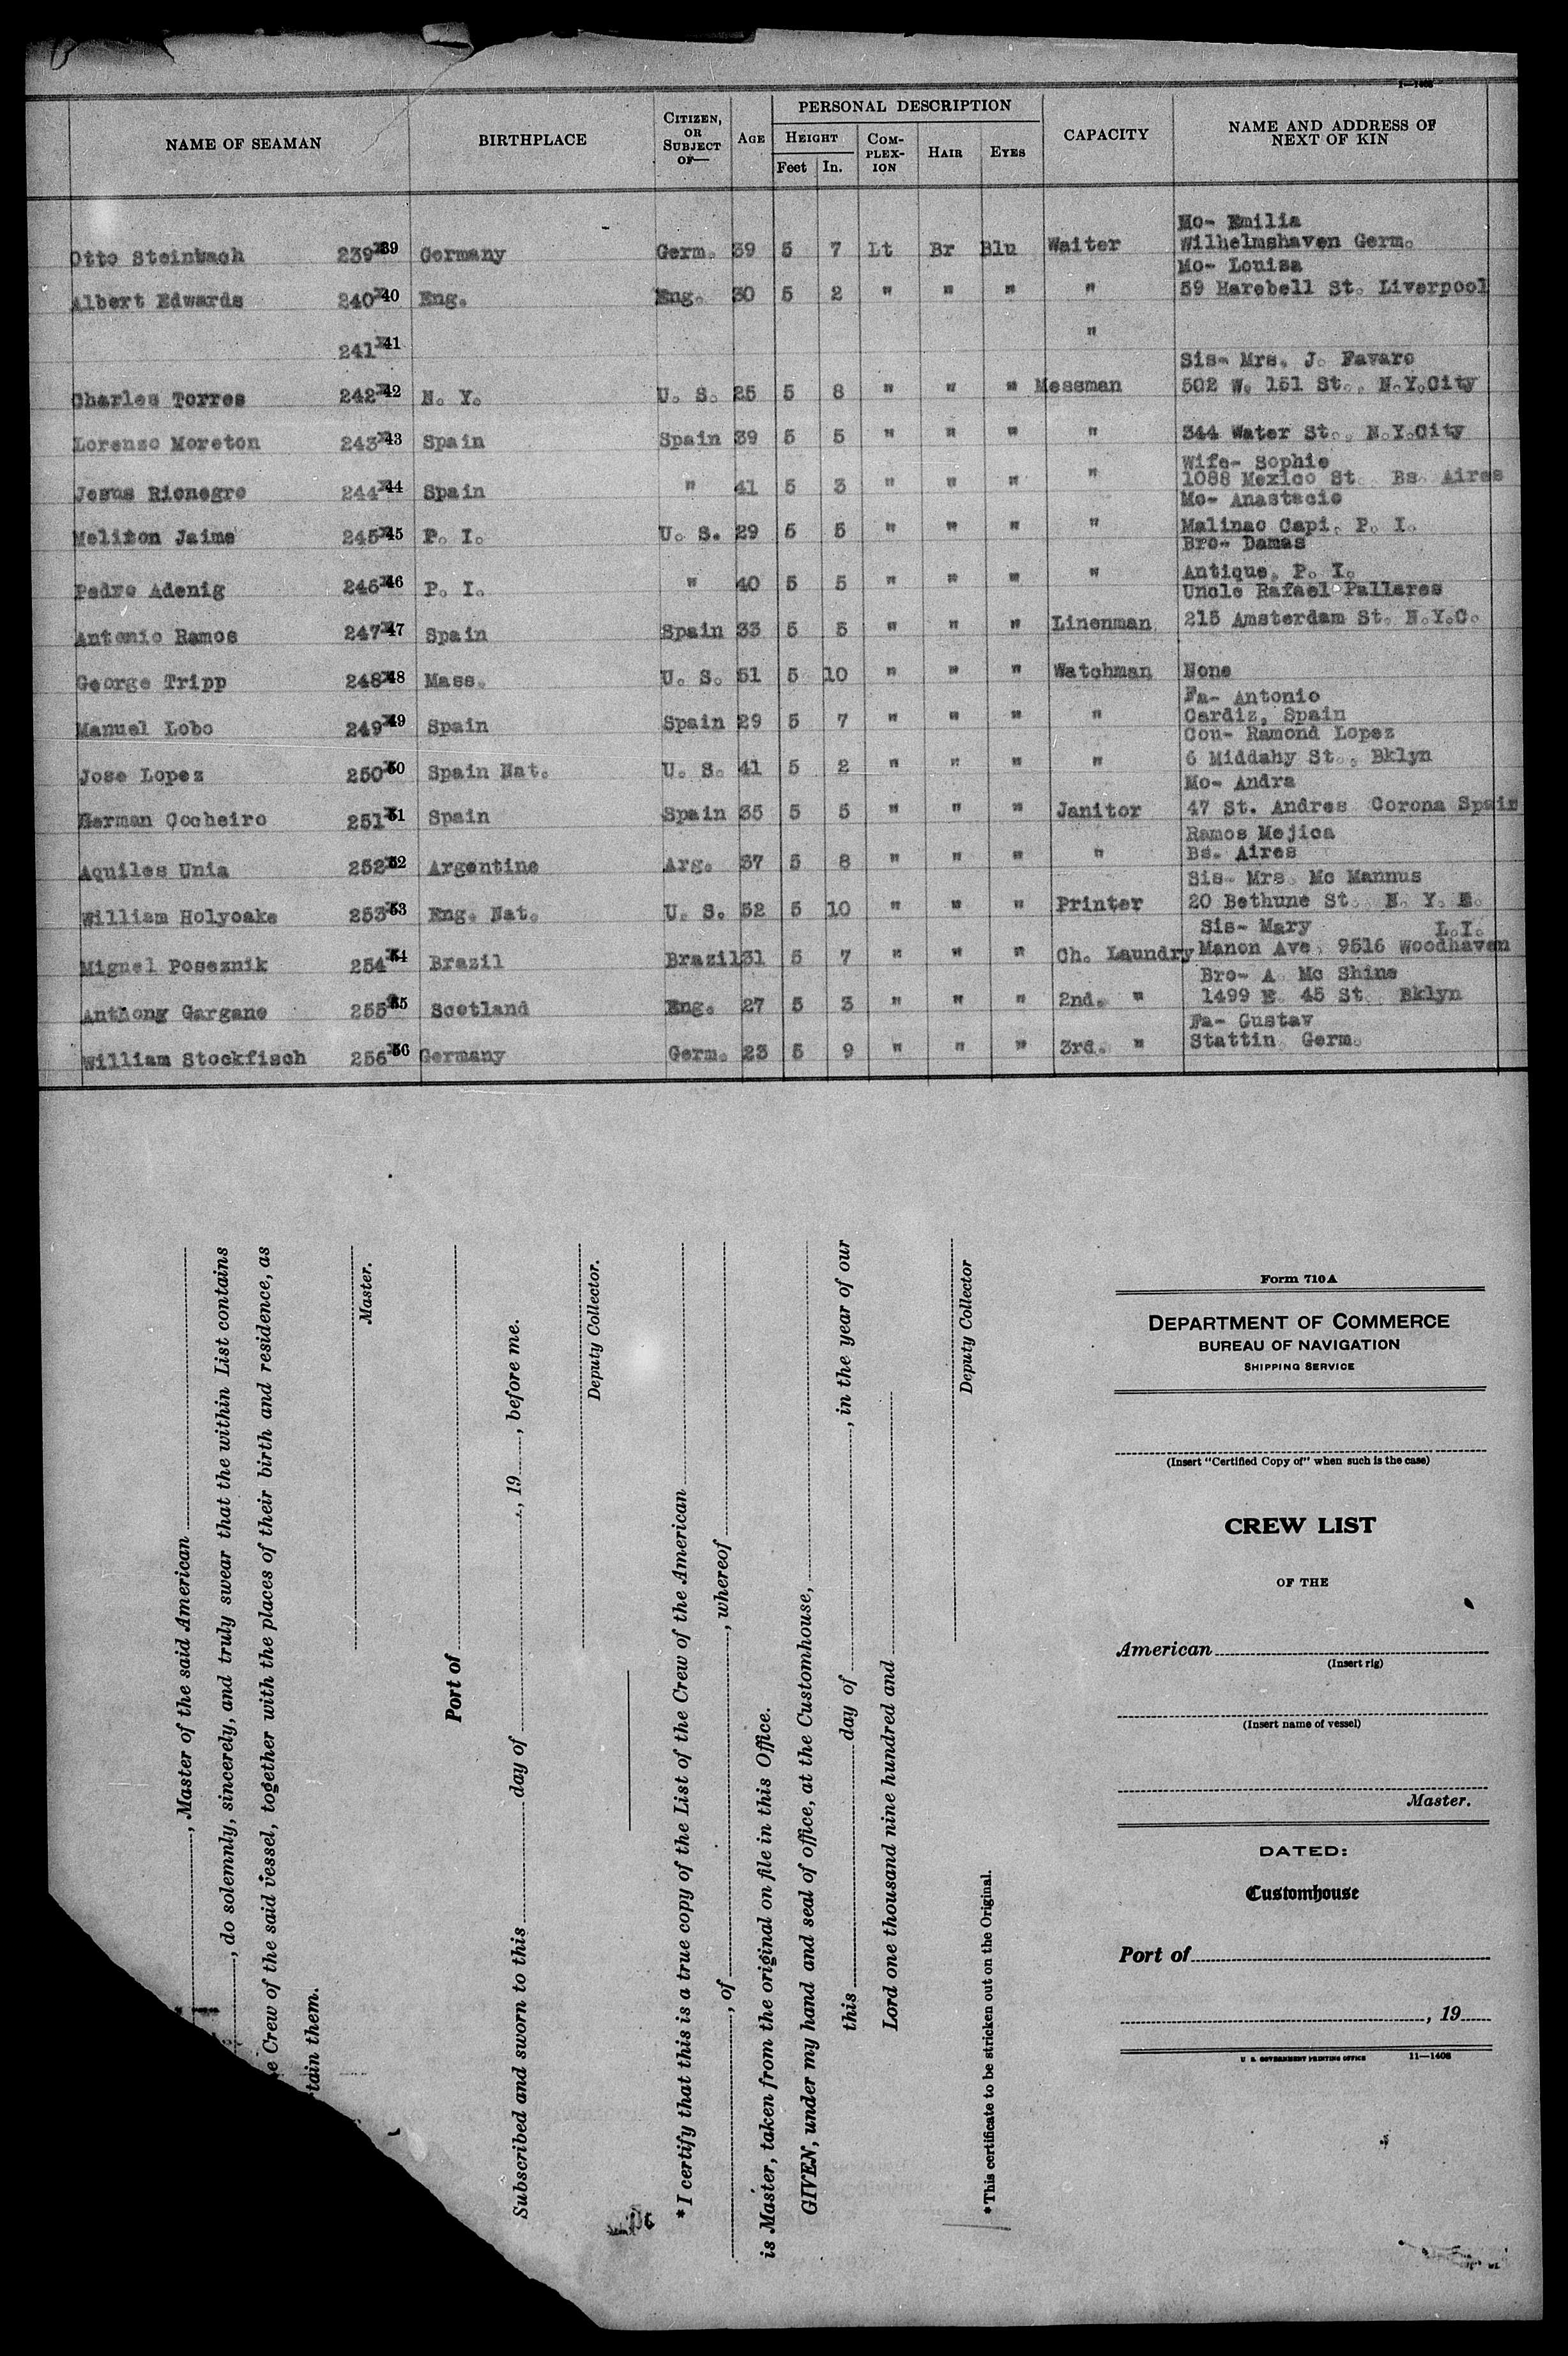 1—1408
NAME OF SEAMAN BIRTHPLACE CITIZEN, OR SUBJECT OF— AGE PERSONAL DESCRIPTION CAPACITY NAME AND ADDRESS OF NEXT OF KIN
HEIGHT COM-PLEX-ION HAIR EYES
Feet In.
Mo- Emilia
Otto Steinbach 239 39 Germany Germ. 39 5 7 Lt Br Blu Waiter Wilhelmshaven Germ.
Mo- Louisa
Albert Edwards 240 40 Eng. Eng. 30 5 2 " " " " 59 Harebell St. Liverpool
241 41 "
Sis- Mrs. J. Favaro
Charles Torres 242 42 N. Y. U. S. 25 5 8 " " " Messman 502 W. 151 St., N.Y.City
Lorenzo Moreton 243 43 Spain Spain 39 5 5 " " " " 344 Water St., N.Y.City
Wife- Sophie
Jesus Rionegro 244 44 Spain " 41 5 3 " " " " 1088 Mexico St. Bs. Aires
Mo- Anastacio
Meliton Jaime 245 45 P. I. U. S. 29 5 5 " " " " Malinao Capi. P. I.
Bro- Damas
Pedro Adenig 246 46 P. I. " 40 5 5 " " " " Antique, P. I.
Uncle Rafael Pallares
Antonio Ramos 247 47 Spain Spain 33 5 5 " " " Linenman 215 Amsterdam St. N.Y.C.
George Tripp 248 48 Mass. U. S. 51 5 10 " " " Watchman None
Fa- Antonio
Manuel Lobo 249 49 Spain Spain 29 5 7 " " " " Cardiz, Spain
Cou- Ramond Lopez
Jose Lopez 250 50 Spain Nat. U. S. 41 5 2 " " " " 6 Middahy St., Bklyn
Mo- Andra
Herman Cocheiro 251 51 Spain Spain 35 5 5 " " " Janitor 47 St. Andres Corona Spain
Ramos Mejica
Aquiles Unia 252 52 Argentine Arg. 37 5 8 " " " " Bs. Aires
Sis- Mrs. Mc Mannus
William Holyoake 253 53 Eng. Nat. U. S. 52 5 10 " " " Printer 20 Bethune St. N. Y. E.
Sis- Mary L.I.
Miguel Poseznik 254 54 Brazil Brazil 31 5 7 " " " Ch. Laundry Manon Ave. 9516 Woodhaven
Bro- A Mc Shine
Anthony Gargano 255 55 Scotland Eng. 27 5 3 " " " 2nd. " 1499 E. 45 St. Bklyn
Fa- Gustav
William Stockfisch 256 56 Germany Germ. 23 5 9 " " " 3rd. " Stattin Germ.
, Master of the said American
, do solemnly, sincerely, and truly swear that the within List contains
e Crew of the said vessel, together with the places of their birth and residence, as
tain them.
Master.
Port of
Subscribed and sworn to this day of , 19 , before me.
Deputy Collector.
*I certify that this is a true copy of the List of the Crew of the American
, of , whereof
is Master, taken from the original on file in this Office.
GIVEN, under my hand and seal of office, at the Customhouse,
this day of , in the year of our
Lord one thousand nine hundred and
Deputy Collector
*This certificate to be stricken out on the Original.
Form 710A
DEPARTMENT OF COMMERCE
BUREAU OF NAVIGATION
SHIPPING SERVICE
(Insert "Certified Copy of" when such is the case)
CREW LIST
OF THE
American
(Insert rig)
(Insert name of vessel)
Master.
DATED:
Customhouse
Port of
, 19
U. S. GOVERNMENT PRINTING OFFICE 11—1408